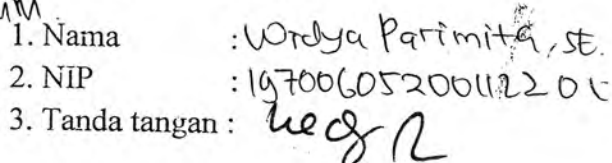 1. Nama : Widya Parimita, SE.
2. NIP : 197006052001122 01
3. Tanda tangan :